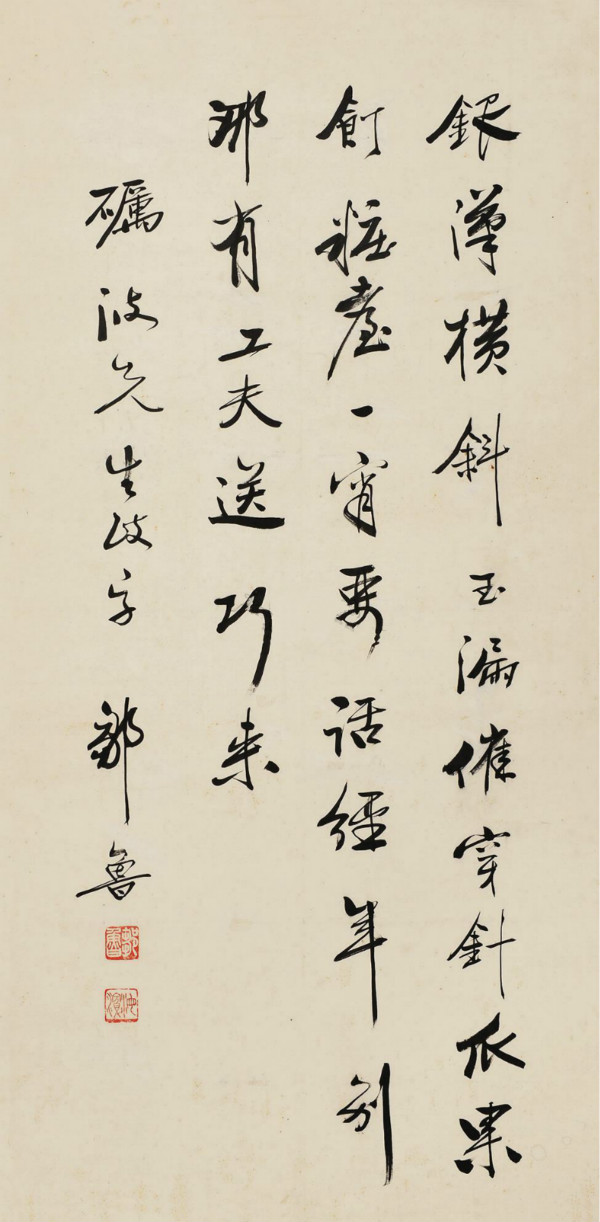 銀漢橫斜玉漏催穿針瓜果
飣粧臺一宵要話經年別
那有工夫送巧來
礪波先生政字 鄒魯
鄒魯
海濱